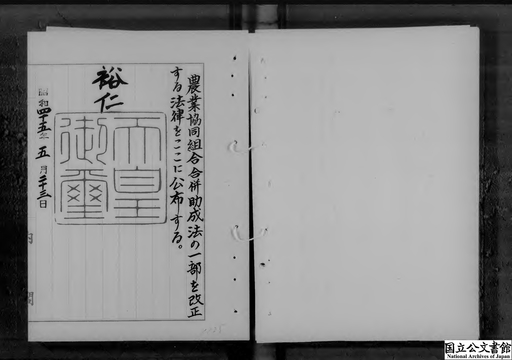 農業協同組合合併助成法の一部を改正
する法律をここに公布する。
裕仁
天皇
御璽
昭和四十五年五月二十三日
内閣
国立公文書館
National Archives of Japan